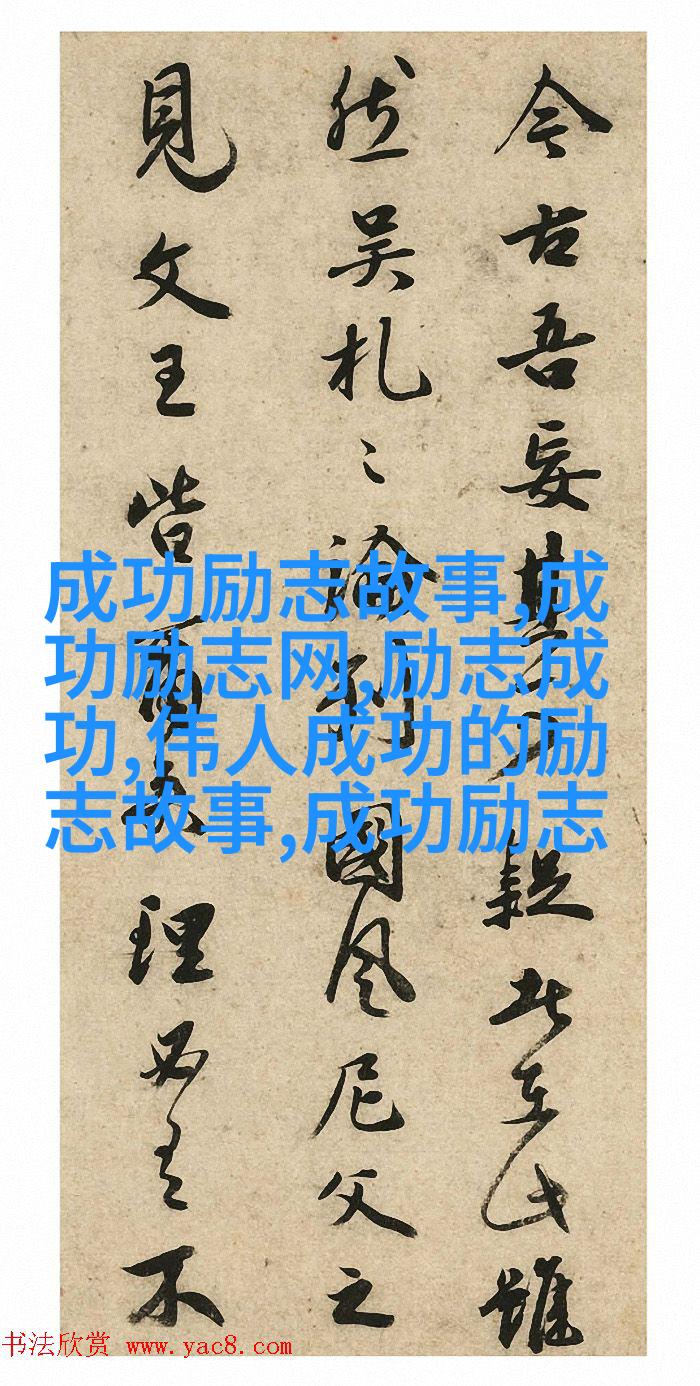 今古吾妄雖
然吴札〻論列國風尼父之
見文王皆理必有不
成功励志故事,成
功励志网,励志成
功,伟人成功的励
志故事,成功励志
书法欣赏 www.yac8.com